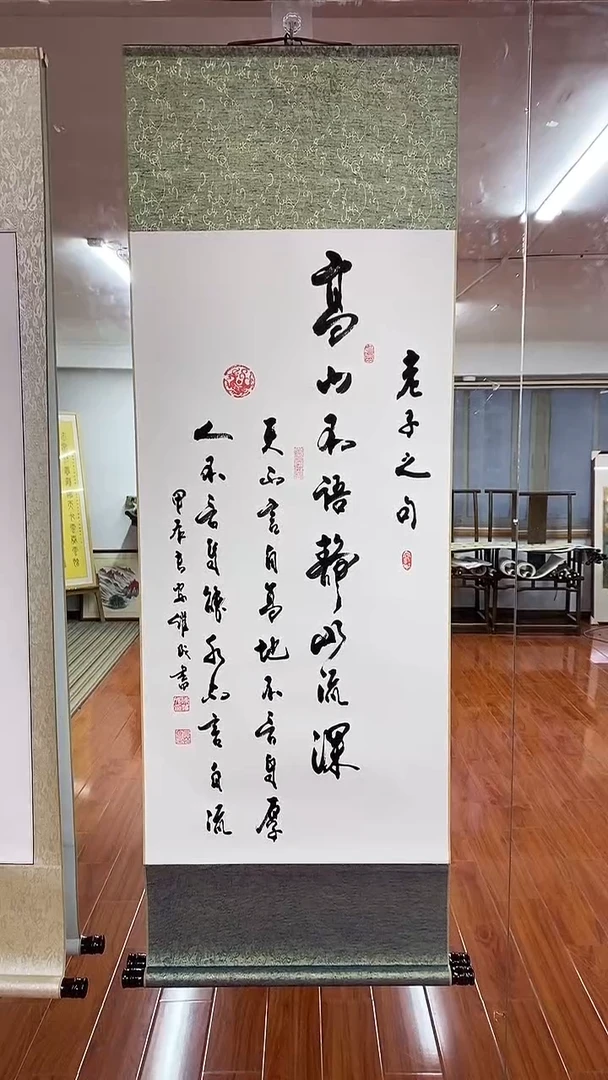 老子之句
高山不语静水流深
天不言自高地不言自厚
人不言自能水不言自流
甲辰长安维书